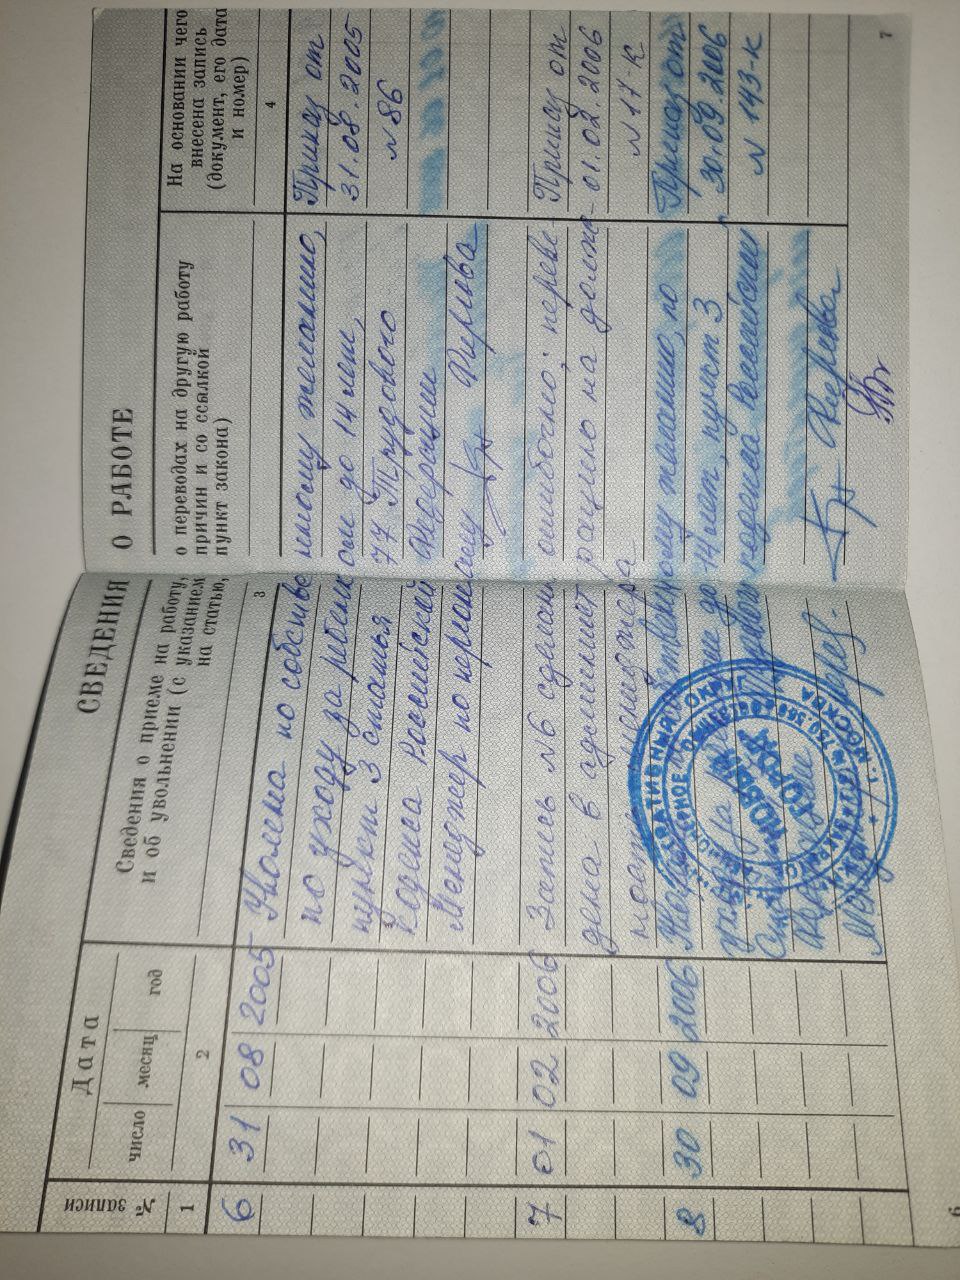 СВЕДЕНИЯ О РАБОТЕ
№ записи
Дата
число месяц год
Сведения о приеме на работу, о переводах на другую работу
и об увольнении (с указанием причин и со ссылкой
на статью, пункт закона)
На основании чего
внесена запись
(документ, его дата
и номер)
1 2 3 4
6 31 08 2005 Уволена по собственному желанию, Приказ от
по уходу за ребенком до 14 лет, 31.08.2005
пункт 3 статья 77 Трудового №86
Кодекса Российской Федерации
Менеджер по персоналу
7 01 02 2006 Запись №6 сделана ошибочно; переве- Приказ от
дена в рацию на должн- 01.02.2006
менеджера №17-к
8 30 09 2006 желанию, по Приказ от
ухода за до 14 лет, пункт 3 30.09.2006
Российской №143-к
АДМИНИСТРАТИВНЫЙ ОКРУГ
МОСКВА
НОВЫЙ
ГОРОД
6
7